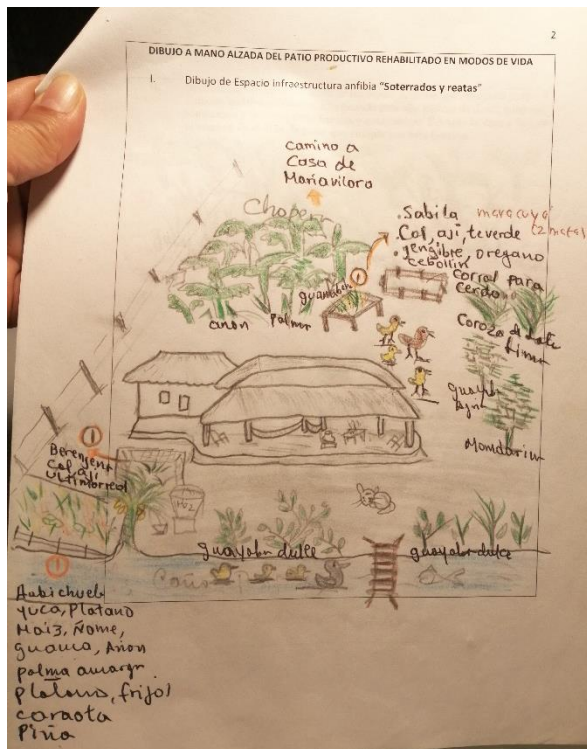 2
DIBUJO A MANO ALZADA DEL PATIO PRODUCTIVO REHABILITADO EN MODOS DE VIDA
I. Dibujo de Espacio infraestructura anfibia "Soterrados y reatas"
camino a
Casa de
Mariaviloro
Choper
. Sabila maracuya
. Col, aji, te verde (2 metas)
. jengibre, oregano
cebollin
1
guanaben
corral para
Cerdo
anon palma
Corozo d late
Lima
guayaba
Agri
Momdarina
1
Berenjena
Col, aji
ultimorreal
Maiz
guayaba dulce
guayaba dulce
Caño
1
Habichuela
yuca, Platano
Maiz, Ñome,
guauca, Añon
palma amarga
platano, frijol
caraota
Piña